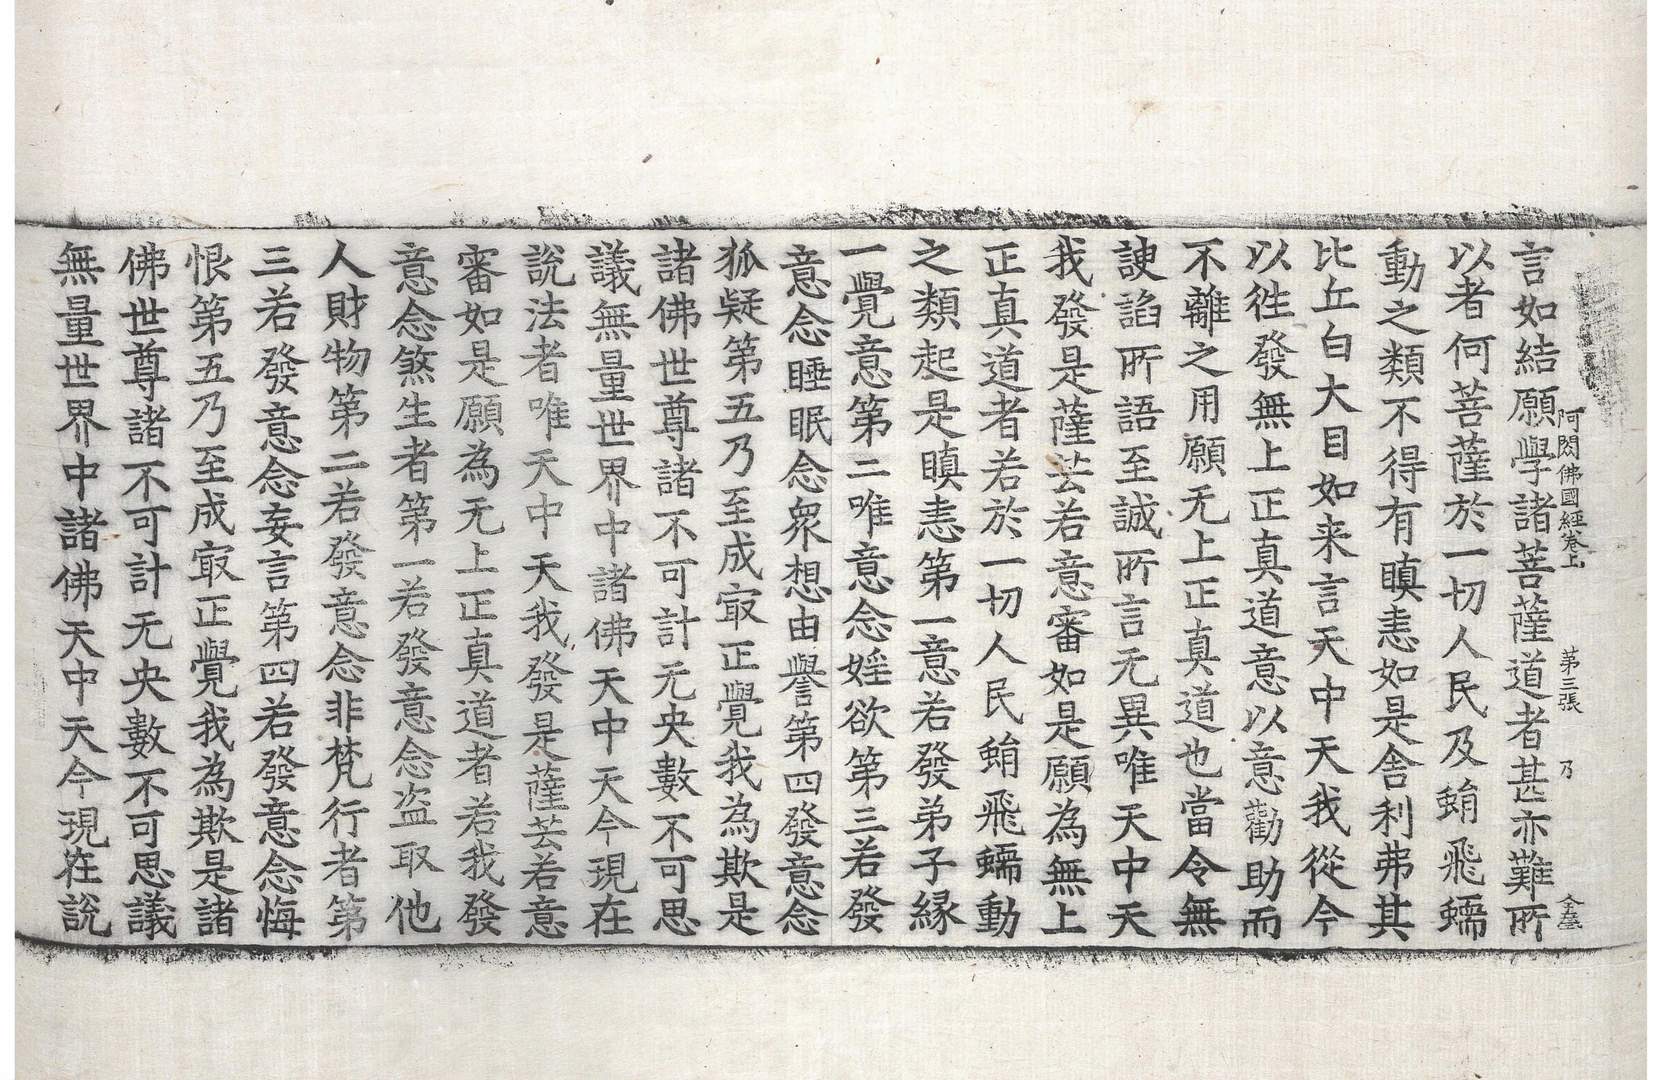 阿閦佛國經卷上 第三張 乃 全書
言如結願學諸菩薩道者甚亦難所
以者何菩薩於一切人民及蜎飛蠕
動之類不得有瞋恚如是舍利弗其
比丘白大目如来言天中天我從今
以徃發無上正真道意以意勸助而
不離之用願无上正真道也當令無
諛諂所語至誠所言无異唯天中天
我發是薩芸若意審如是願為無上
正真道者若於一切人民蜎飛蠕動
之類起是瞋恚第一意若發弟子緣
一覺意第二唯意念婬欲第三若發
意念睡眠念衆想由譽第四發意念
狐疑第五乃至成㝡正覺我為欺是
諸佛世尊諸不可計无央數不可思
議無量世界中諸佛天中天今現在
說法者唯天中天我發是薩芸若意
審如是願為无上正真道者若我發
意念煞生者第一若發意念盜取他
人財物第二若發意念非梵行者第
三若發意念妄言第四若發意念悔
恨第五乃至成㝡正覺我為欺是諸
佛世尊諸不可計无央數不可思議
無量世界中諸佛天中天今現在說